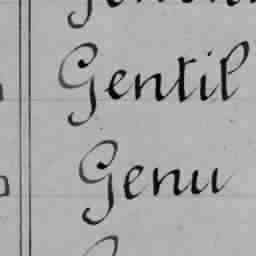 Gentil
Genu